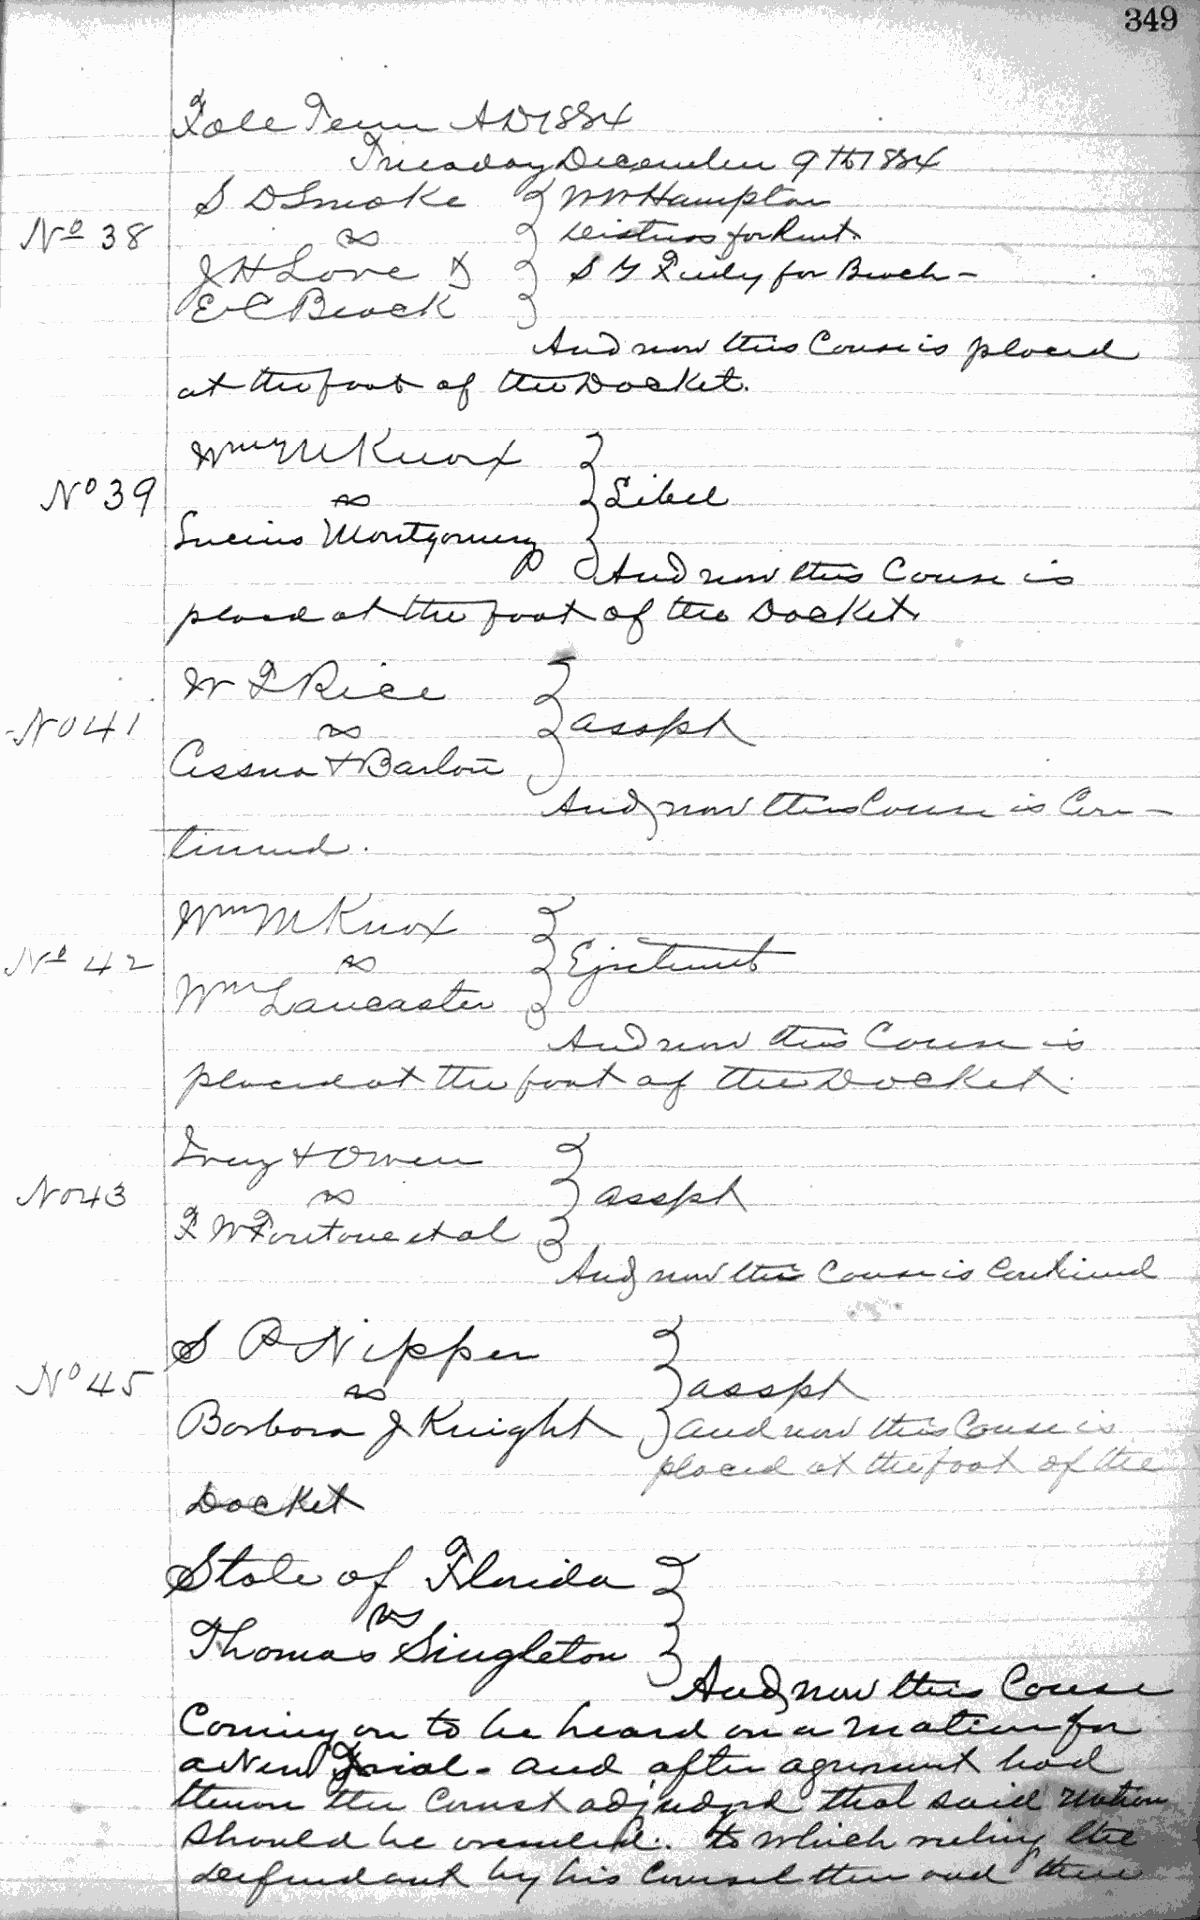 349
Fall Term AD 1884
Tuesday December 9th 1884
S D Smoke } W W Hampton
No 38 vs } Distress for Rent
J H Love & } S Y Finly for Beock -
E C Beock }
And now this Couse is placed
at the foot of the Docket.
Wm M Knox }
No 39 vs } Libel
Lucius Montgomery }
And now this Couse is
placed at the foot of the Docket
W F Rice }
No 41 vs } asspt
Cessna & Barlow }
And now this Couse is Con-
tinued.
Wm M Knox }
No 42 vs } Ejectment
Wm Lancaster }
And now this Couse is
placed at the foot of the Docket.
Ivey & Owen }
No 43 vs } asspt
F W et al }
And now this Couse is Continued
S P Nipper }
No 45 vs } asspt
Barbara J Knight } and now this Couse is
placed at the foot of the
Docket
State of Florida }
vs }
Thomas Singleton }
And now this Couse
Coming on to be heard on a motion for
a New Trial - and after agrument had
thereon the Court adjudged that said motion
should be overruled. to which ruling the
Defendant by his Counsel then and there